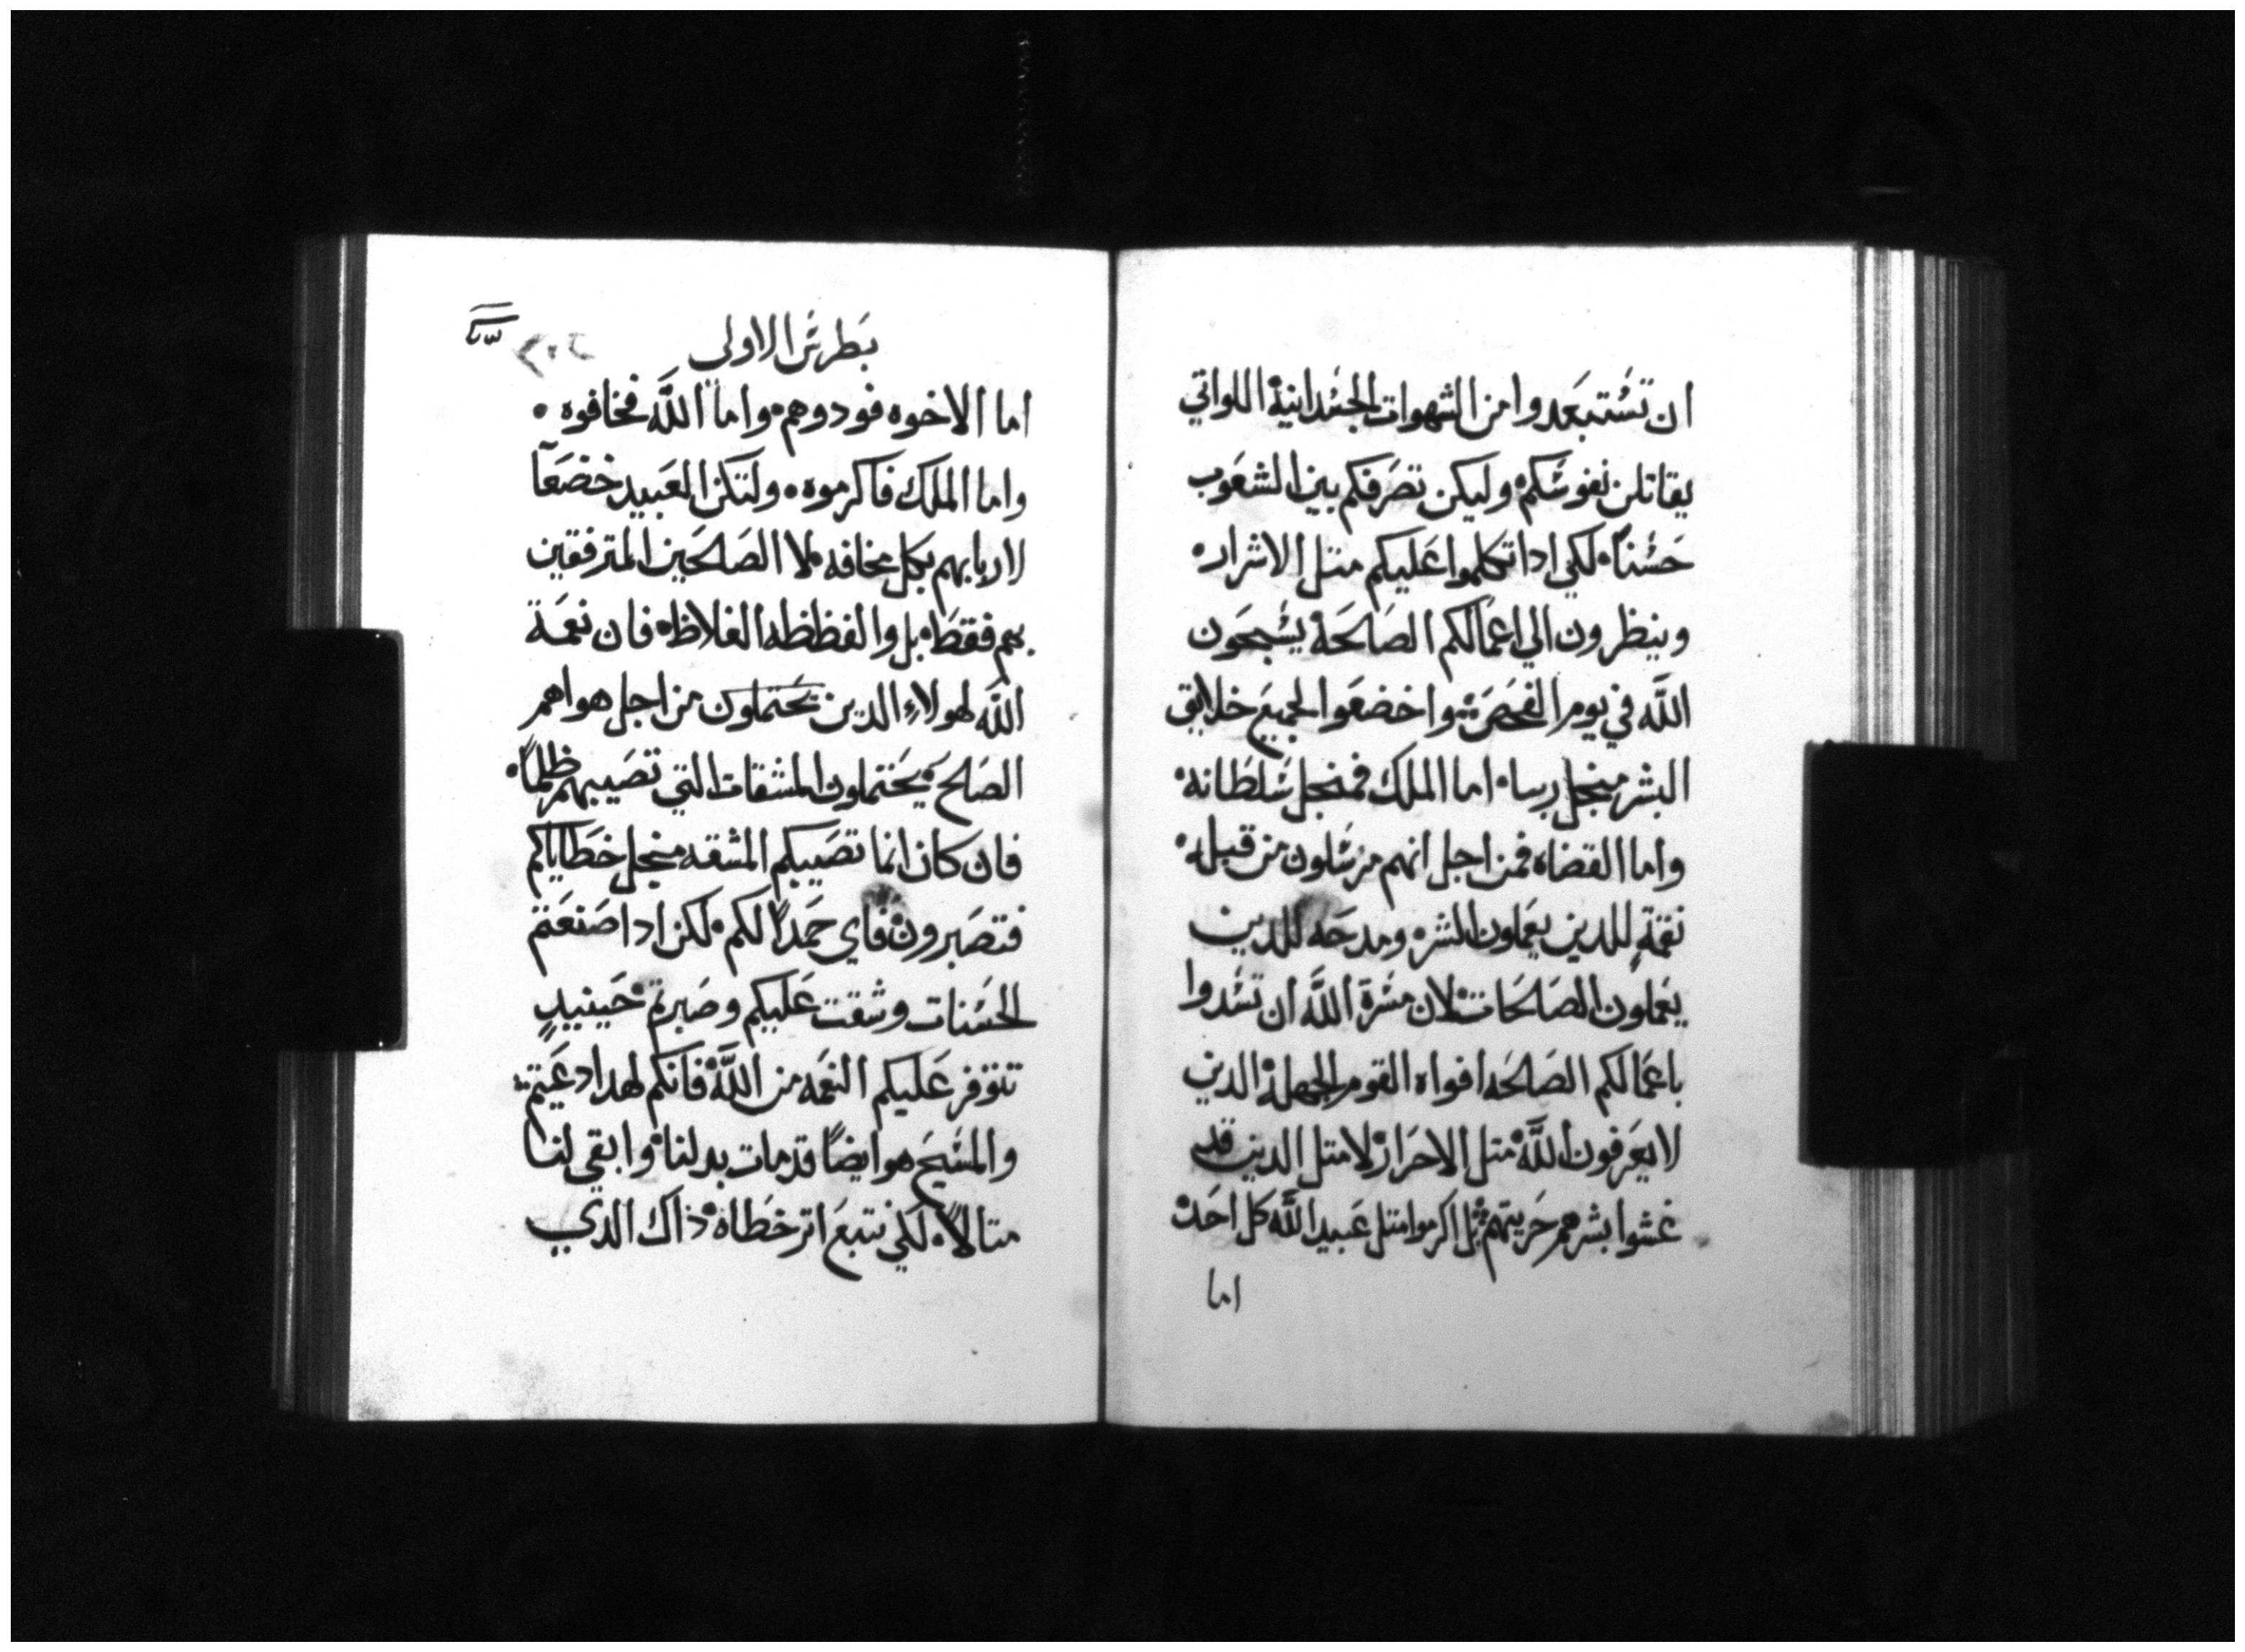 ان تستبعدوا من الشهوات الجسدانية اللواتي
يقاتلن نفوسكم وليكن تصرفكم بين الشعوب
حسناً لكي ادا تكلموا عليكم متل الاشرار
وينظرون الي اعمالكم الصالحة يسبحون
الله في يوم الفحص واخضعوا لجميع خلايق
البشر منجل ربنا اما الملك فمنجل سلطانه
واما القضاه فمن اجل انهم مرسلون من قبله
نقمةٍ للدين يعملون الشر ومدحه للدين
يعملون الصالحات لان مسرة الله ان تسدوا
باعمالكم الصالحه افواه القوم الجهلة الدين
لا يعرفون الله متل الاحرار لا متل الدين قد
غشوا بشرهم حريتهم بل اكرموا متل عبيد الله كل احد
اما
بطرس الاولي
اما الاخوه فودوهم واما الله فخافوه
واما الملك فاكرموه ولتكن العبيد خضعاً
لاربابهم بكل مخافه لا الصالحين المترفقين
بهم فقط بل والفظظه الغلاظ فان نعمة
الله لهولاء الدين تحتملون من اجل هواهم
الصالح يحتملون المشقات التي تصيبهم ظلماً
فان كان انما تصيبكم المشقه منجل خطاياكم
فتصبرون فاي حمداً لكم لكن ادا صنعتم
الحسنات وشقت عليكم وصبرتم حينيدٍ
تتوفر عليكم النعمه من الله فانكم لهدا دعيتم
والمسيح هو ايضاً قد مات بدلنا وابقي لنا
متالاً لكي نتبع اتر خطاه ذاك الدي